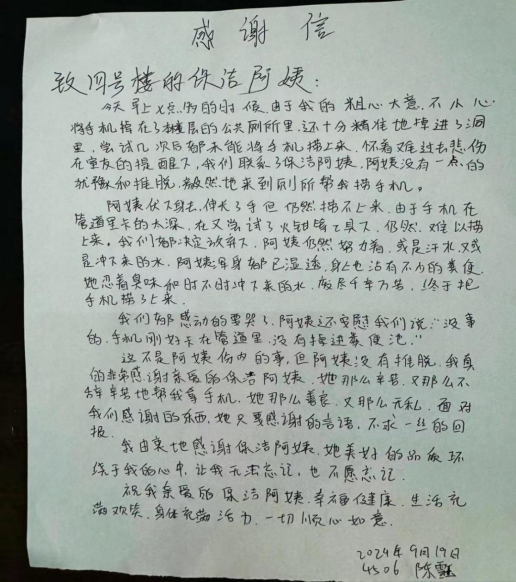 感谢信
致四号楼的保洁阿姨：
今天早上七点多的时候，由于我的粗心大意，不小心
将手机掉在了楼层的公共厕所里，还十分精准地掉进了洞
里，尝试几次后都未能将手机捞上来，怀着难过悲伤
在室友的提醒下，我们联系了保洁阿姨，阿姨没有一点的
犹豫和推脱，毅然地来到厕所帮我捞手机。
阿姨伏下身去，伸长了手但仍然捞不上来，由于手机在
管道里卡的太深，在又尝试了火钳等工具下，仍然难以捞
上来。我们都决定放弃了，阿姨仍然努力着，或是汗水，又或
是冲下来的水，阿姨浑身都已湿透，身上也沾有不少的粪便，
她忍着臭味和时不时冲下来的水，废尽千辛万苦，终于把
手机捞了上来。
我们都感动的要哭了，阿姨还安慰我们说：“没事
的，手机刚好卡在管道里，没有掉进粪便池。”
这不是阿姨份内的事，但阿姨没有推脱，我真
的非常感谢亲爱的保洁阿姨，她那么辛苦，又那么不
辞辛苦地帮我寻手机，她那么善良，又那么无私，面对
我们感谢的东西，她只要感谢的言语，不求一丝的回
报。
我由衷地感谢保洁阿姨，她美好的品质环
绕于我的心中，让我无法忘记，也不愿忘记。
祝我亲爱的保洁阿姨：幸福健康，生活充
满欢笑，身体充满活力，一切顺心如意。
2024年9月19日
4506 陈